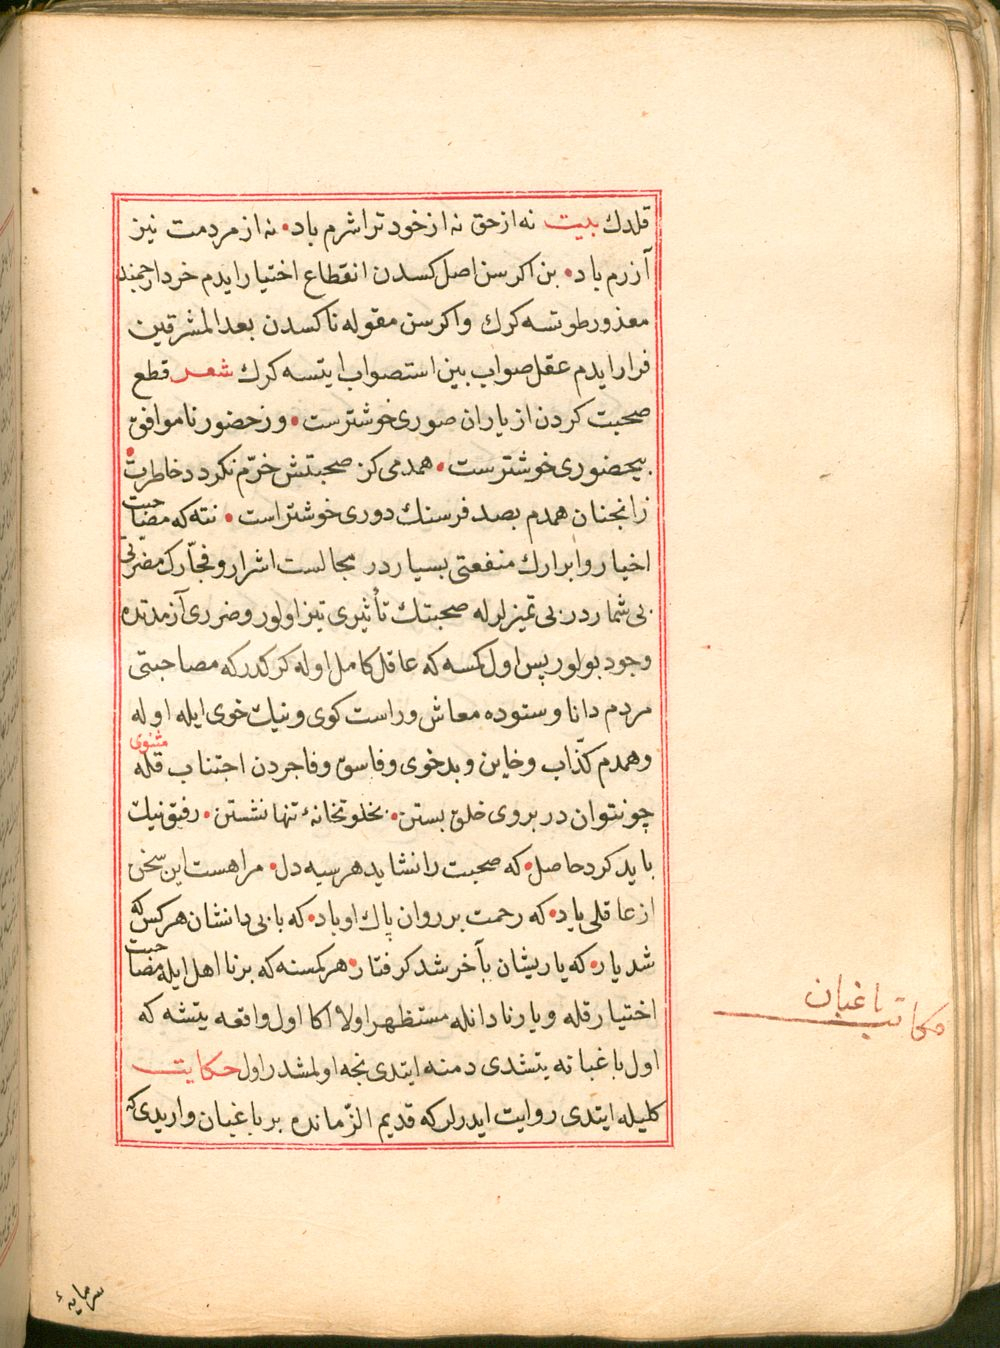 قلدك بيت نه از حق نه از خود ترا شرم باد • نه از مردمت نيز
آزرم باد • بن اكر سن اصل كسدن انقطاع اختيار ايدم خردارجمند
معذور طوتسه كرك واكر سن مقوله ناكسدن بعد المشرقين
فرار ايدم عقل صواب بين استصواب ايتسه كرك شعر قطع
صحبت كردن از ياران صورى خوشترست • وز حضور ناموافق
بيحضورى خوشترست • همدمى كز صحبتش خرّم نكردد خاطرت •
زانجنان همدم بصد فرسنك دورى خوشتر است • نته كه مصاحبت
اخيار وابرارك منفعتى بسيار در مجالست اشرار وفجّارك مضرّتى
بى شمار در بى تميزلرله صحبتك تأثيرى تيز اولور وضررى آز مدتده
وجود بولور پس اول كمسه كه عاقل كامل اوله كركدر كه مصاحبتى
مردم دانا وستوده معاش وراست كوى ونيك خوى ايله اوله
وهمدم كذّاب وخاين وبدخوى وفاسق وفاجردن اجتناب قله مثنوى
چو نتوان در بروى خلق بستن • بخلوتخانهٔ تنها نشستن • رفيق نيك
بايد كرد حاصل • كه صحبت را نشايد هر سيه دل • مرا هست اين سخن
از عاقلى ياد • كه رحمت بر روان پاك او باد • كه با بى دانشان هر كس كه
شد يار • كه ياريشان بآخر شد كرفتار • هر كمسنه كه بر نا اهل ايله مصاحبت
اختيار قله ويار نادانله مستظهر اولا اكا اول واقعه يتشه كه
اول باغبانه يتشدى دمنه ايتدى نجه اولمشدر اول حكايت
كليله ايتدى روايت ايدرلر كه قديم الزّمانده بر باغبان واريدى كه
حكايت باغبان
سرمايهٔ